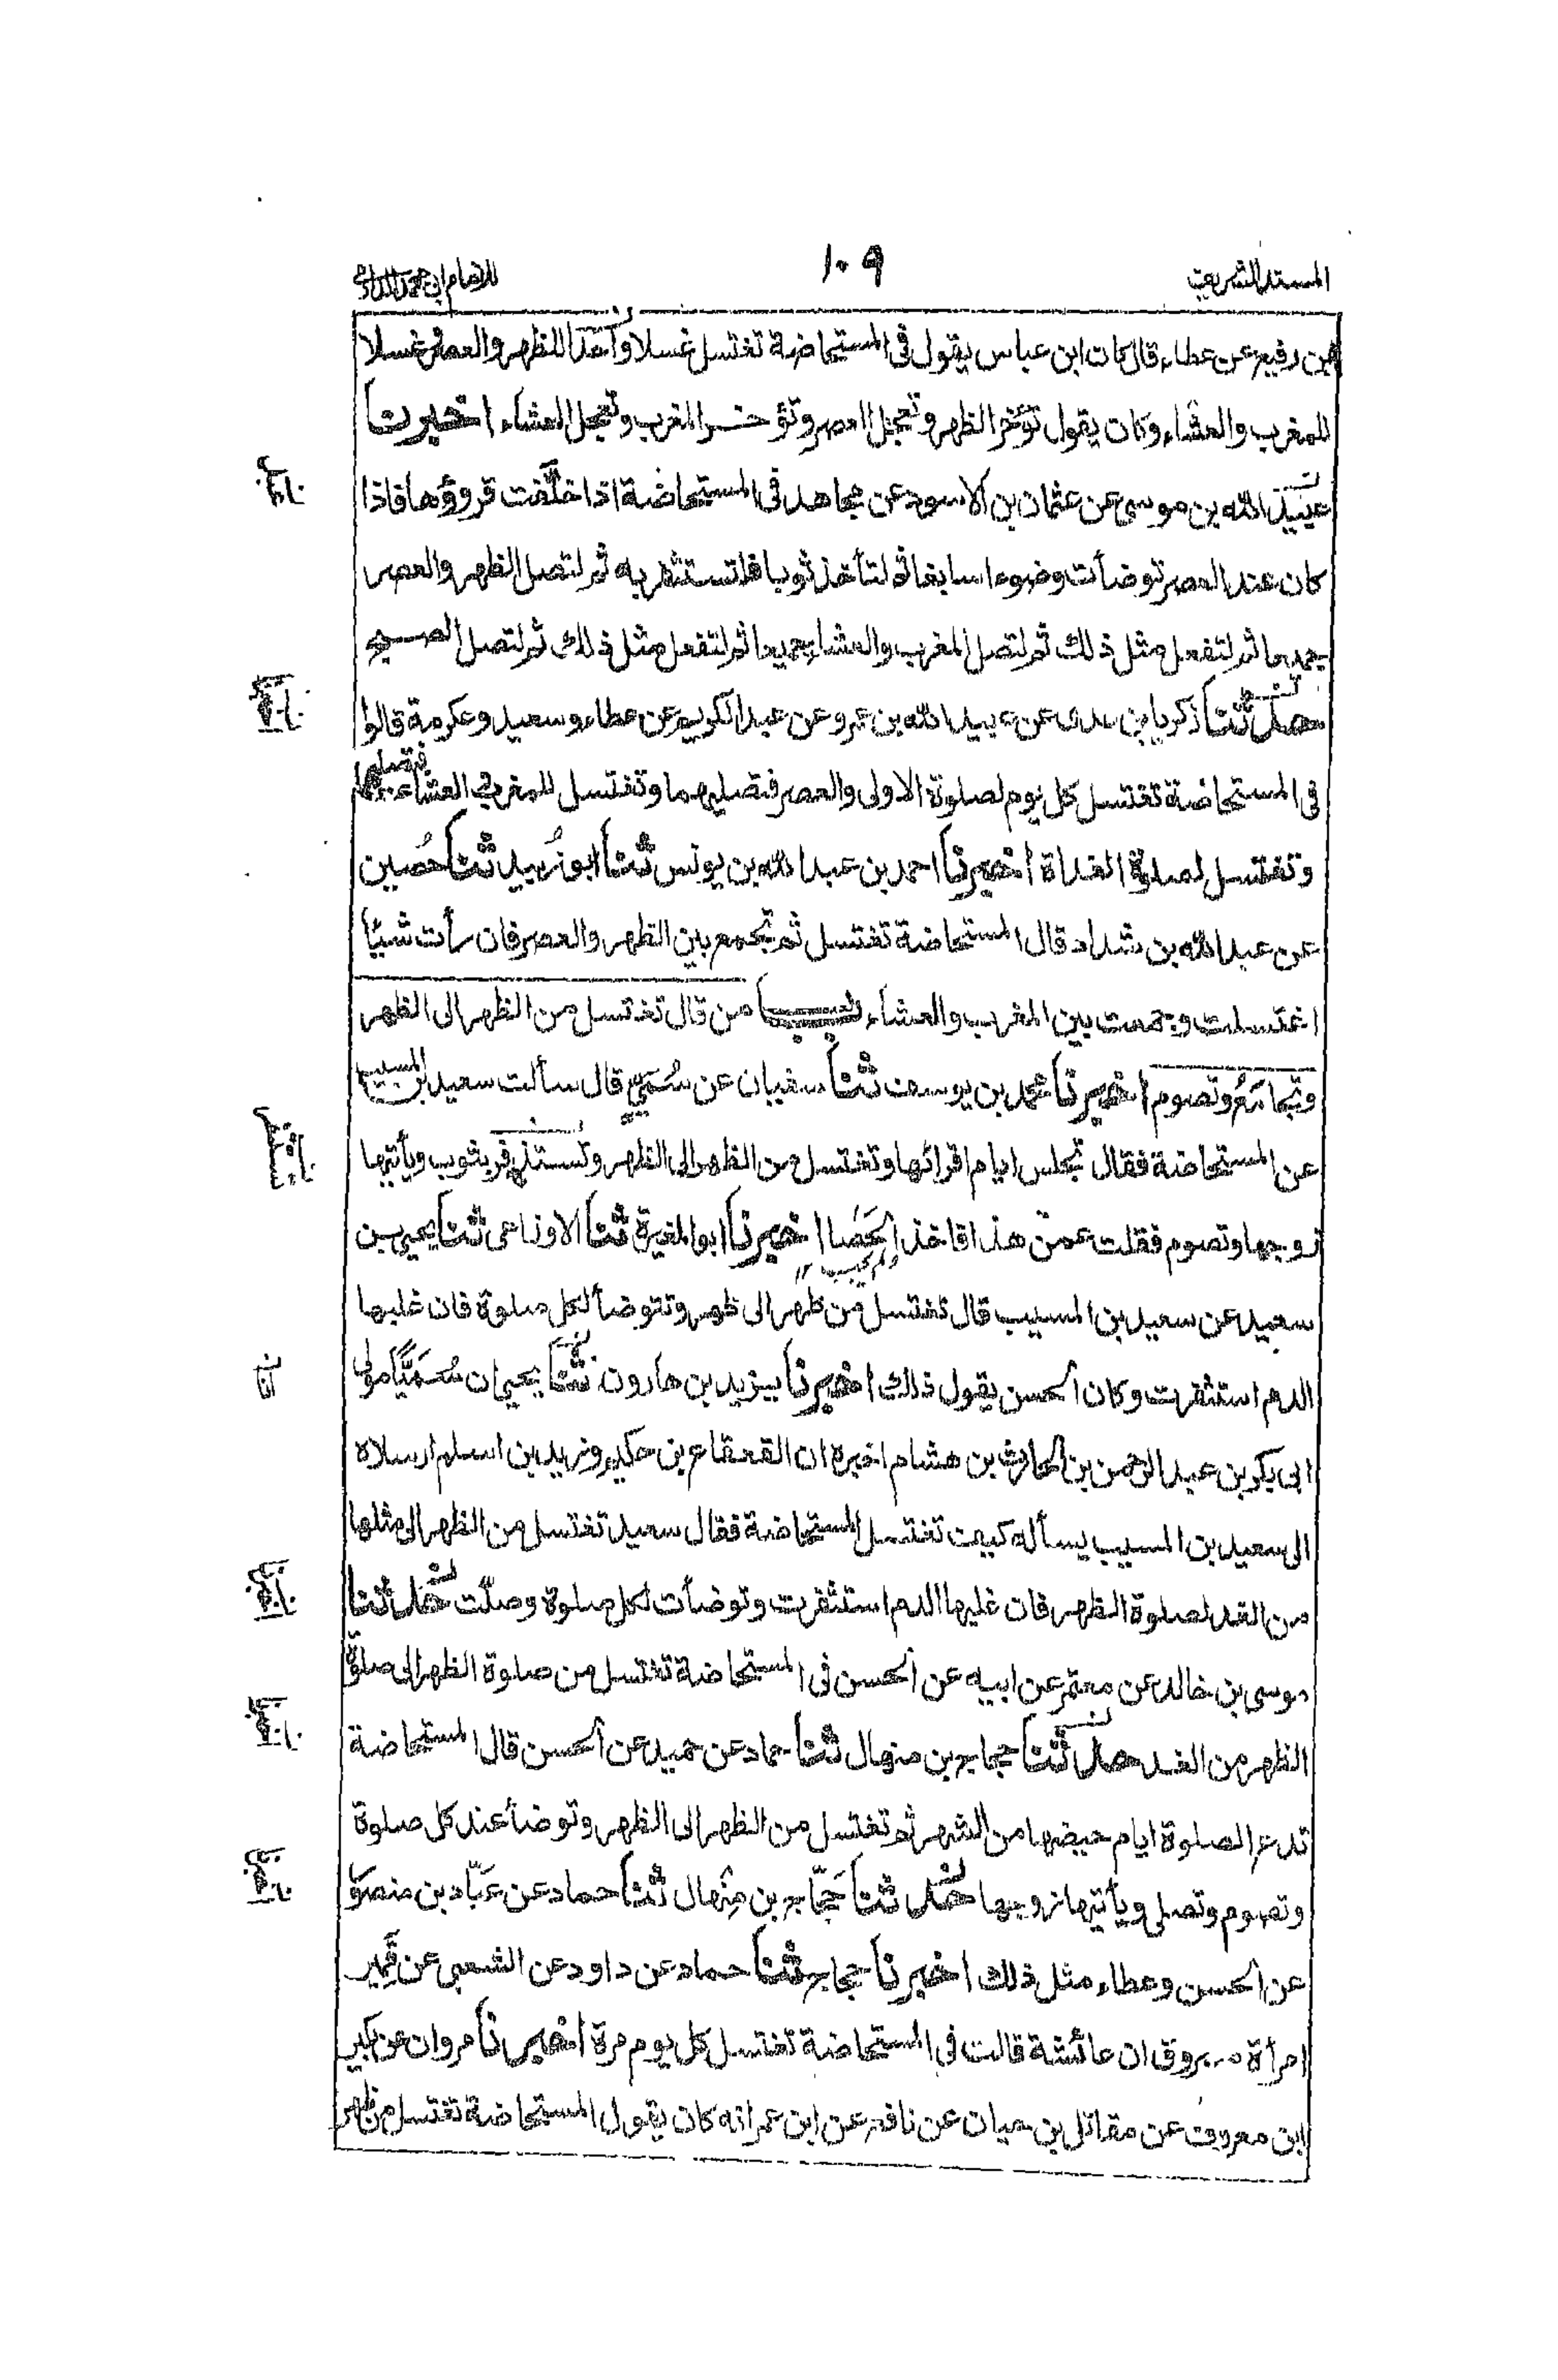 المسند الشريف
١٠٩
للامام ابى محمد الدارمى
بن رفيع عن عطاء قال كان ابن عباس يقول فى المستحاضة تغتسل غسلا واحدا للظهر والعصر غسلا
للمغرب والعشاء وكان يقول تؤخر الظهر وتعجل العصر وتؤخر المغرب وتعجل العشاء اخبرنا
عبيد الله بن موسى عن عثمان بن الاسود عن مجاهد فى المستحاضة اذا خلّفت قروؤها فاذا
كان عند العصر توضأت وضوءا سابغا ثم لتأخذ ثوبا فلتستثفر به ثم لتصل الظهر والعصر
جميعا ثم لتفعل مثل ذلك ثم لتصل المغرب والعشا جميعا ثم لتفعل مثل ذلك ثم لتصل الصبح
حدثنا زكريا بن عدى عن عبيد الله بن عمرو عن عبد الكريم عن عطاء وسعيد وعكرمة قالوا
فى المستحاضة تغتسل كل يوم لصلوة الاولى والعصر فتصليهما وتغتسل للمغرب والعشاء فتصليهما
وتغتسل لصلوة الغداة اخبرنا احمد بن عبد الله بن يونس ثنا ابو زُبيد ثنا حُصين
عن عبد الله بن شداد قال المستحاضة تغتسل ثم تجمع بين الظهر والعصر فان رأت شيئا
اغتسلت وجمعت بين المغرب والعشاء باب من قال تغتسل من الظهر الى الظهر
وتجامَع وتصوم اخبرنا محمد بن يوسف ثنا سفيان عن سُمَيٍّ قال سألت سعيد بن المسيب
عن المستحاضة فقال تجلس ايام اقرائها وتغتسل من الظهر الى الظهر وتستذفر بثوب ويأتيها
زوجها وتصوم فقلت عمن هذا فاخذ الحَصَا اخبرنا ابو المغيرة ثنا الاوزاعى ثنا يحيى بن
سعيد عن سعيد بن المسيب قال تغتسل من ظهر الى ظهر وتتوضأ لكل صلوة فان غلبها
الدم استثفرت وكان الحسن يقول ذلك اخبرنا يزيد بن هارون ثنا يحيى ان سُمَيًّا مولى
ابى بكر بن عبد الرحمن بن الحارث بن هشام اخبره ان القعقاع بن حكيم وزيد بن اسلم ارسلاه
الى سعيد بن المسيب يسأله كيف تغتسل المستحاضة فقال سعيد تغتسل من الظهر الى مثلها
من الغد لصلوة الظهر فان غلبها الدم استثفرت وتوضأت لكل صلوة وصلّت حدثنا
موسى بن خالد عن معتمر عن ابيه عن الحسن فى المستحاضة تغتسل من صلوة الظهر الى صلوة
الظهر من الغد حدثنا حجاج بن منهال ثنا حماد عن حميد عن الحسن قال المستحاضة
تدع الصلوة ايام حيضها من الشهر ثم تغتسل من الظهر الى الظهر وتوضأ عند كل صلوة
وتصوم وتصلى ويأتيها زوجها حدثنا حَجّاج بن مِنهال ثنا حماد عن عبّاد بن منصور
عن الحسن وعطاء مثل ذلك اخبرنا حجاج ثنا حماد عن داود عن الشعبى عن قَمير
امرأة مسروق ان عائشة قالت فى المستحاضة تغتسل كل يوم مرة اخبرنا مروان عن بكير
ابن معروف عن مقاتل بن حيان عن نافع عن ابن عمر انه كان يقول المستحاضة تغتسل من ظهر